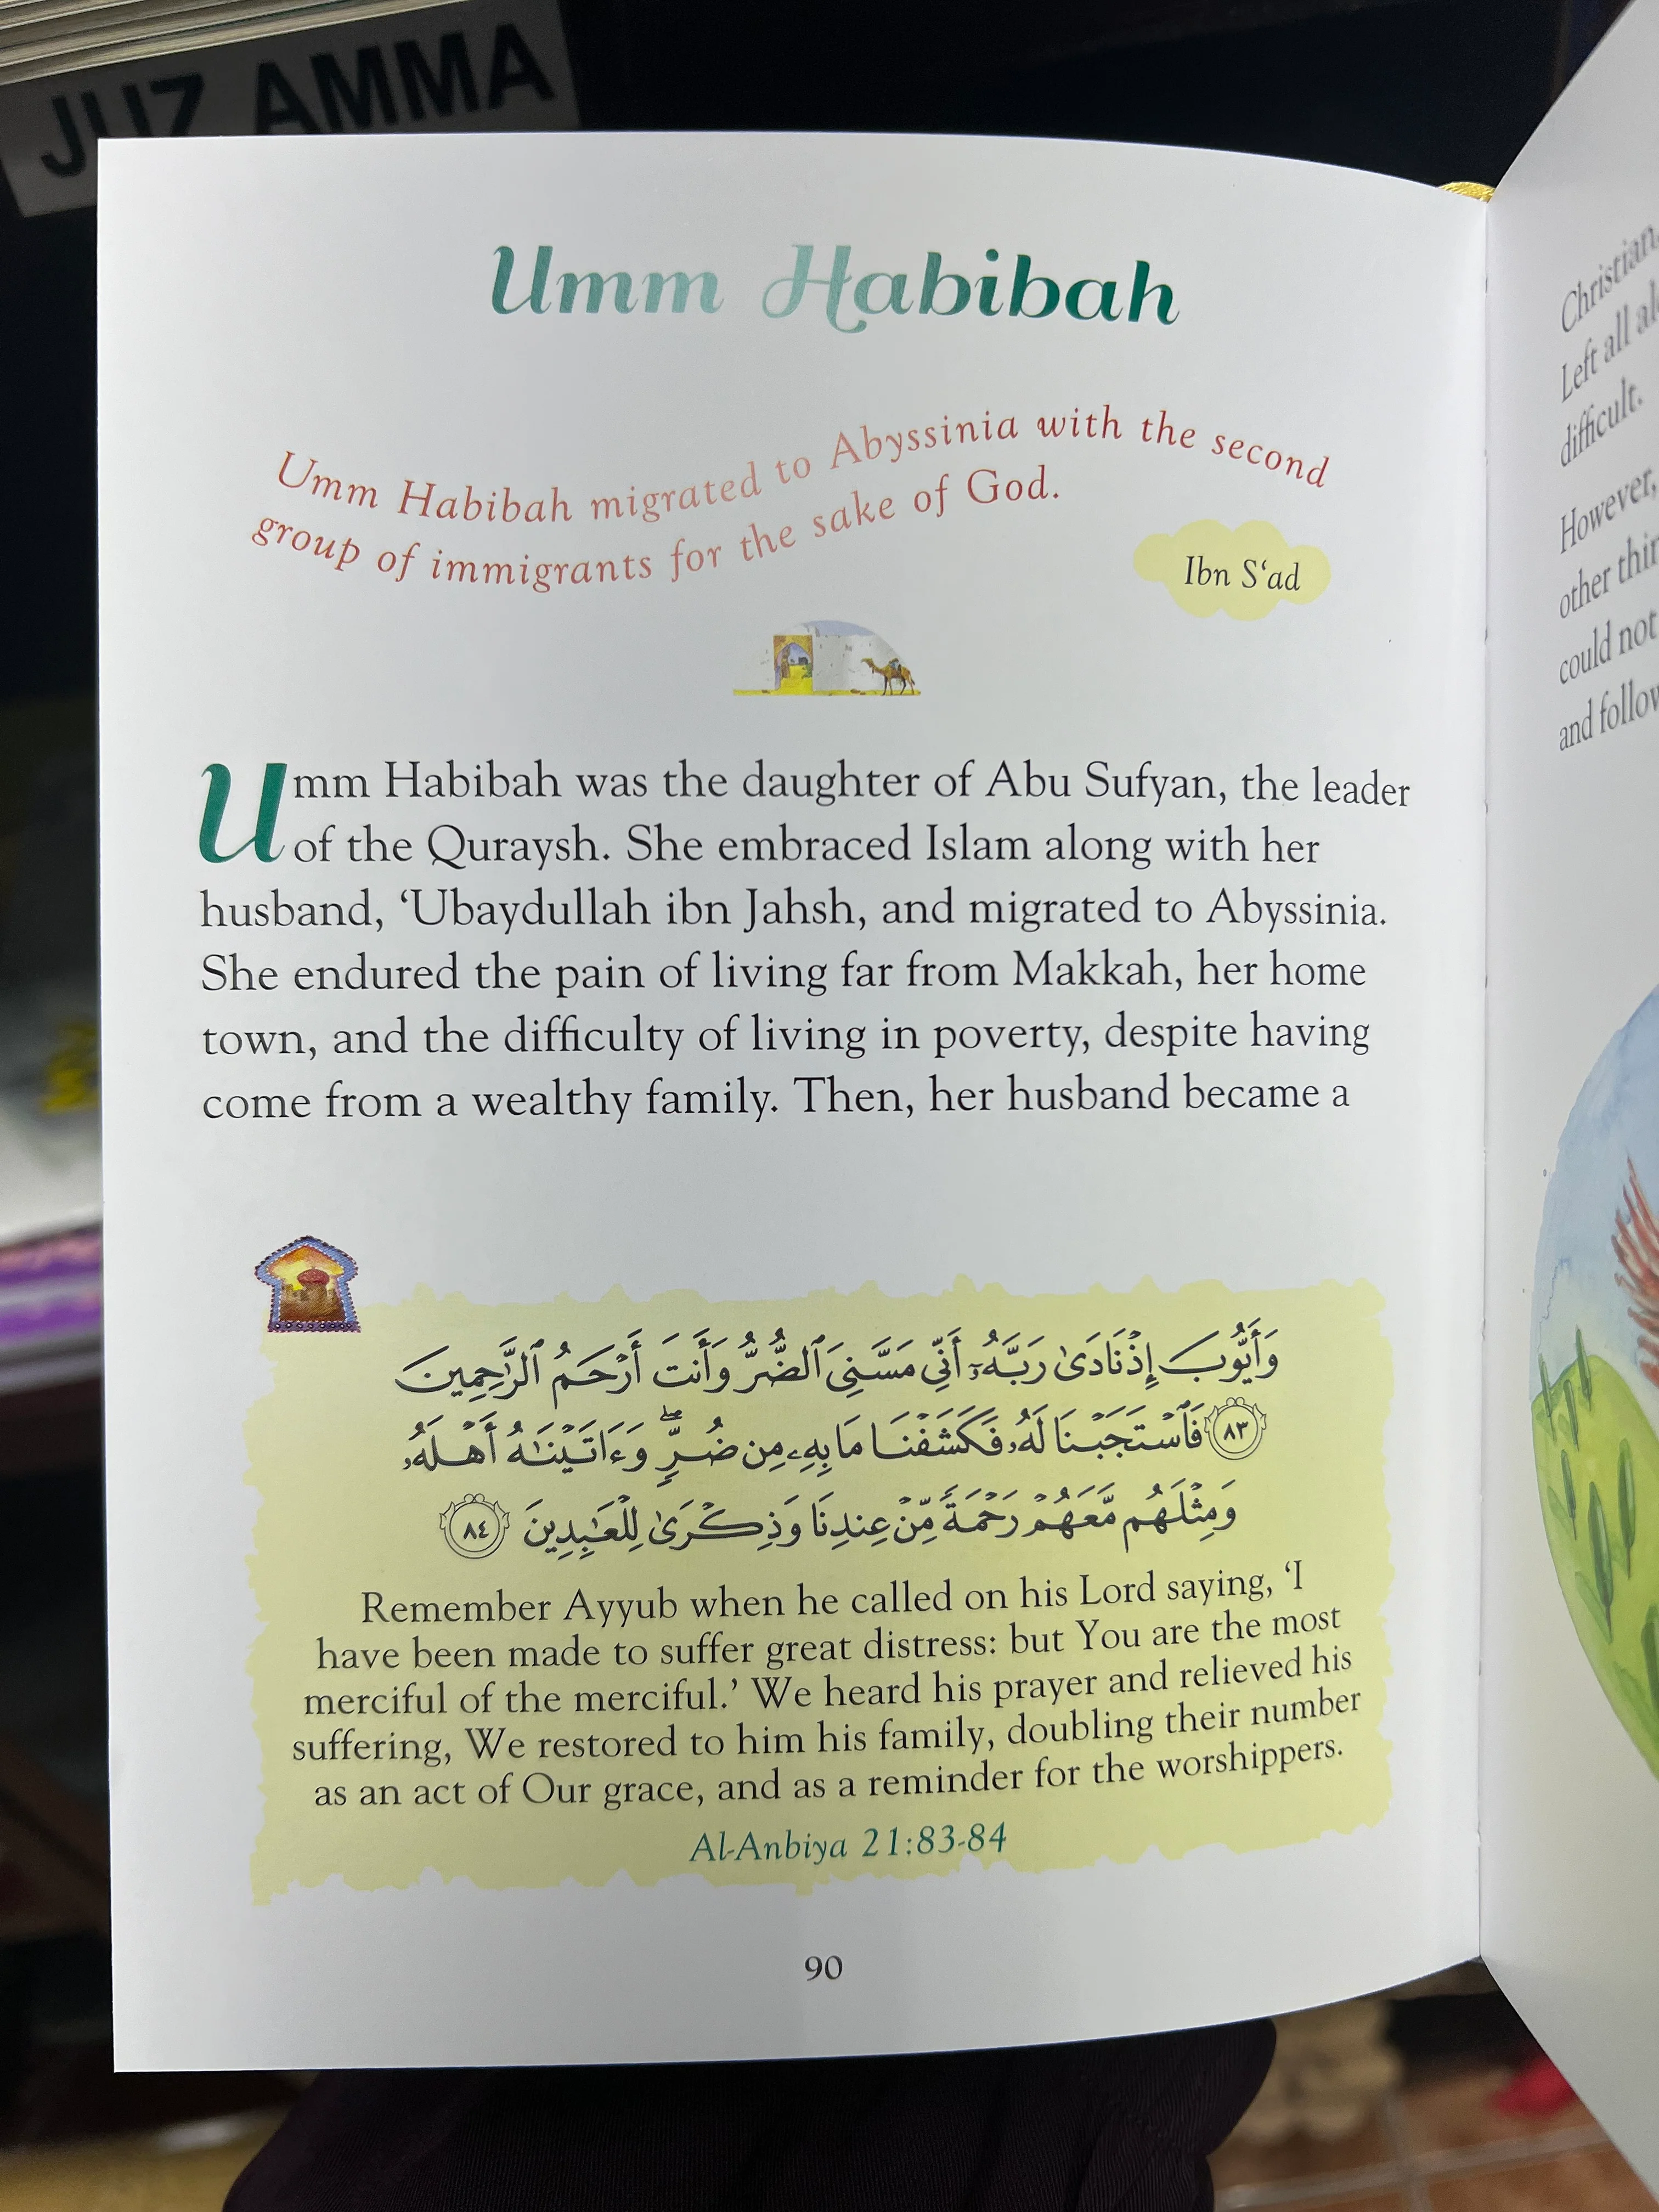 JUZ AMMA
Umm Habibah
Umm Habibah migrated to Abyssinia with the second
group of immigrants for the sake of God.
Ibn S‘ad
Umm Habibah was the daughter of Abu Sufyan, the leader
of the Quraysh. She embraced Islam along with her
husband, ‘Ubaydullah ibn Jahsh, and migrated to Abyssinia.
She endured the pain of living far from Makkah, her home
town, and the difficulty of living in poverty, despite having
come from a wealthy family. Then, her husband became a
وَأَيُّوبَ إِذْ نَادَىٰ رَبَّهُۥٓ أَنِّى مَسَّنِىَ ٱلضُّرُّ وَأَنتَ أَرْحَمُ ٱلرَّٰحِمِينَ
٨٣ فَٱسْتَجَبْنَا لَهُۥ فَكَشَفْنَا مَا بِهِۦ مِن ضُرٍّۖ وَءَاتَيْنَٰهُ أَهْلَهُۥ
وَمِثْلَهُم مَّعَهُمْ رَحْمَةً مِّنْ عِندِنَا وَذِكْرَىٰ لِلْعَٰبِدِينَ ٨٤
Remember Ayyub when he called on his Lord saying, ‘I
have been made to suffer great distress: but You are the most
merciful of the merciful.’ We heard his prayer and relieved his
suffering, We restored to him his family, doubling their number
as an act of Our grace, and as a reminder for the worshippers.
Al-Anbiya 21:83-84
90
Christian.
Left all
difficult.
However,
other
could not
and